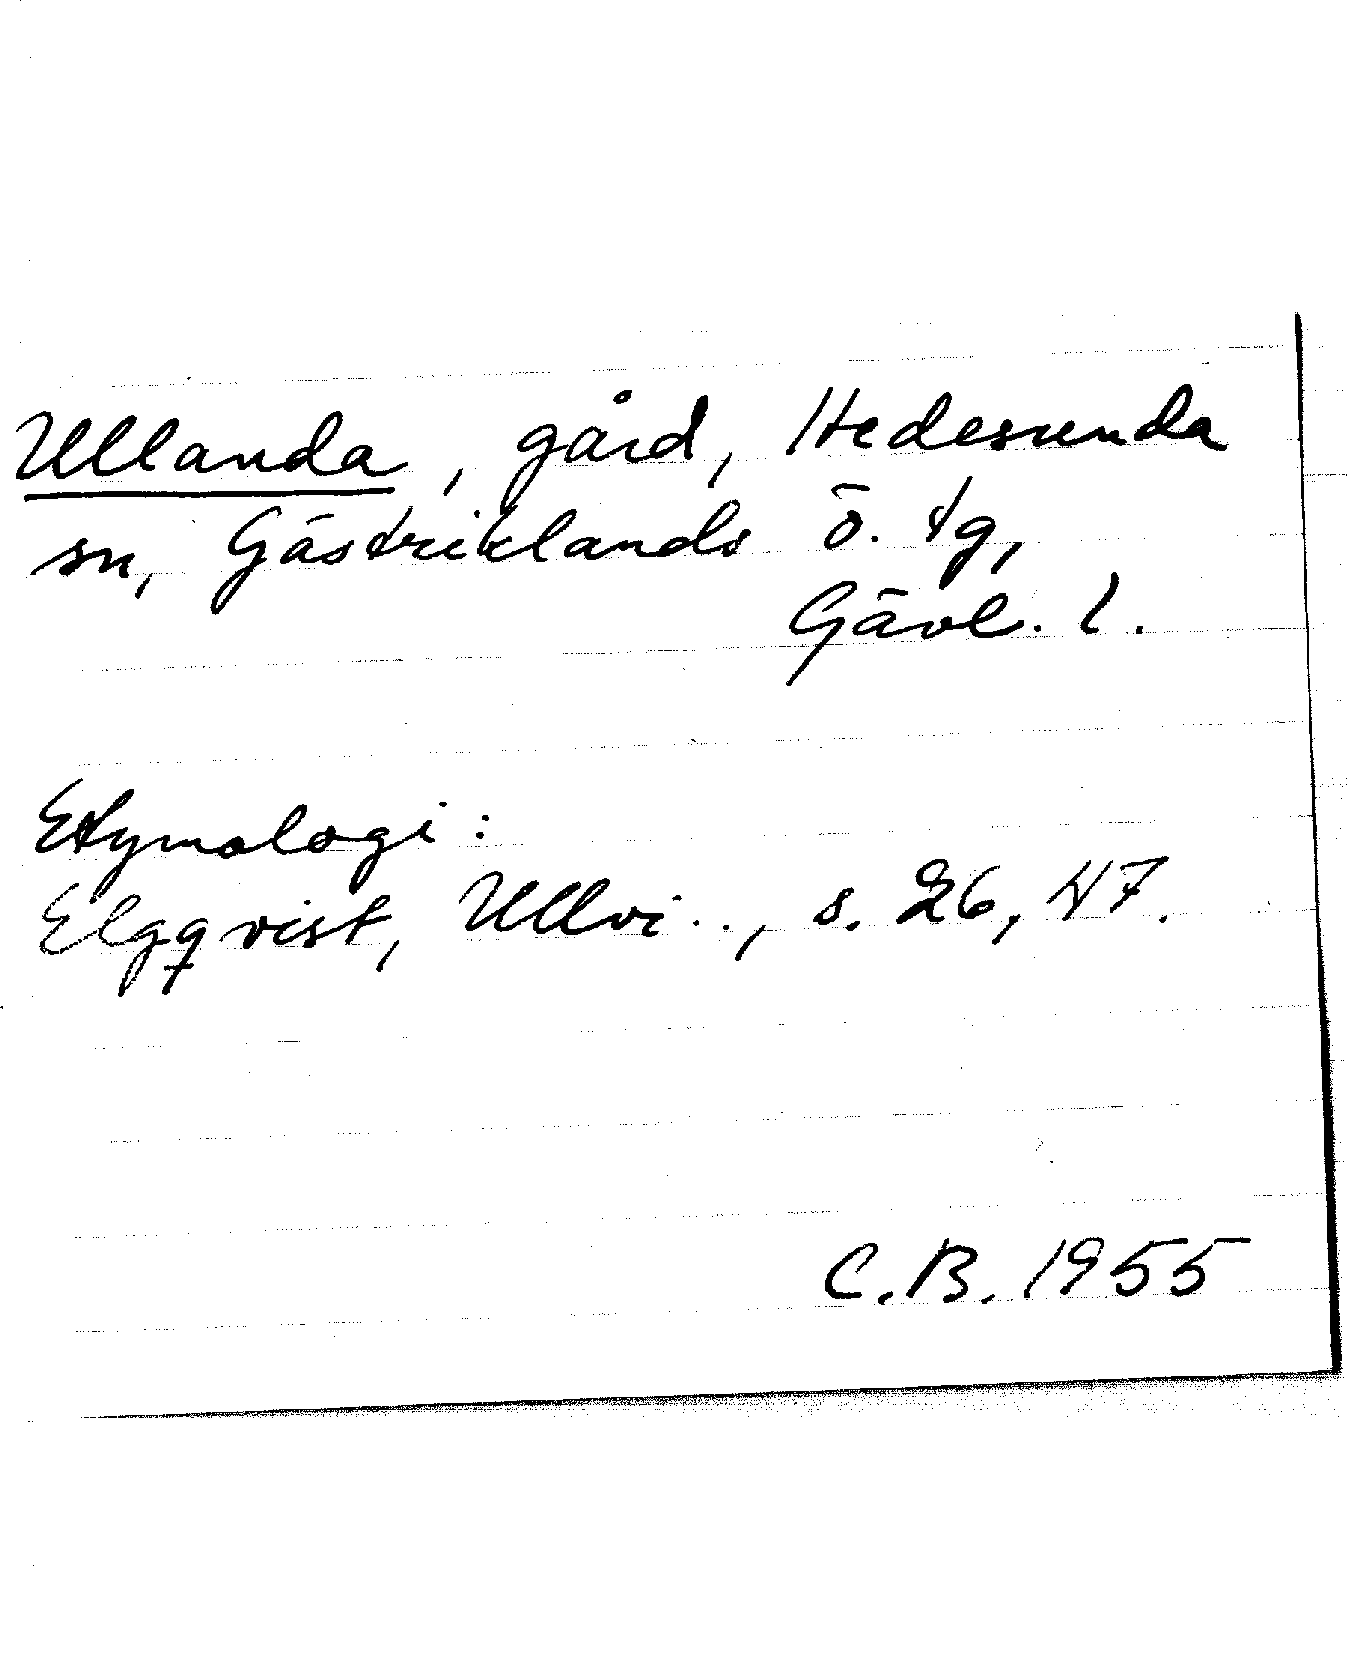 Ullanda, gård, Hedesunda
sn, Gästriklands ö. tg,
Gävl. l.
Etymologi:
Elgqvist, Ullvi.., s. 26, 47.
C.B. 1955